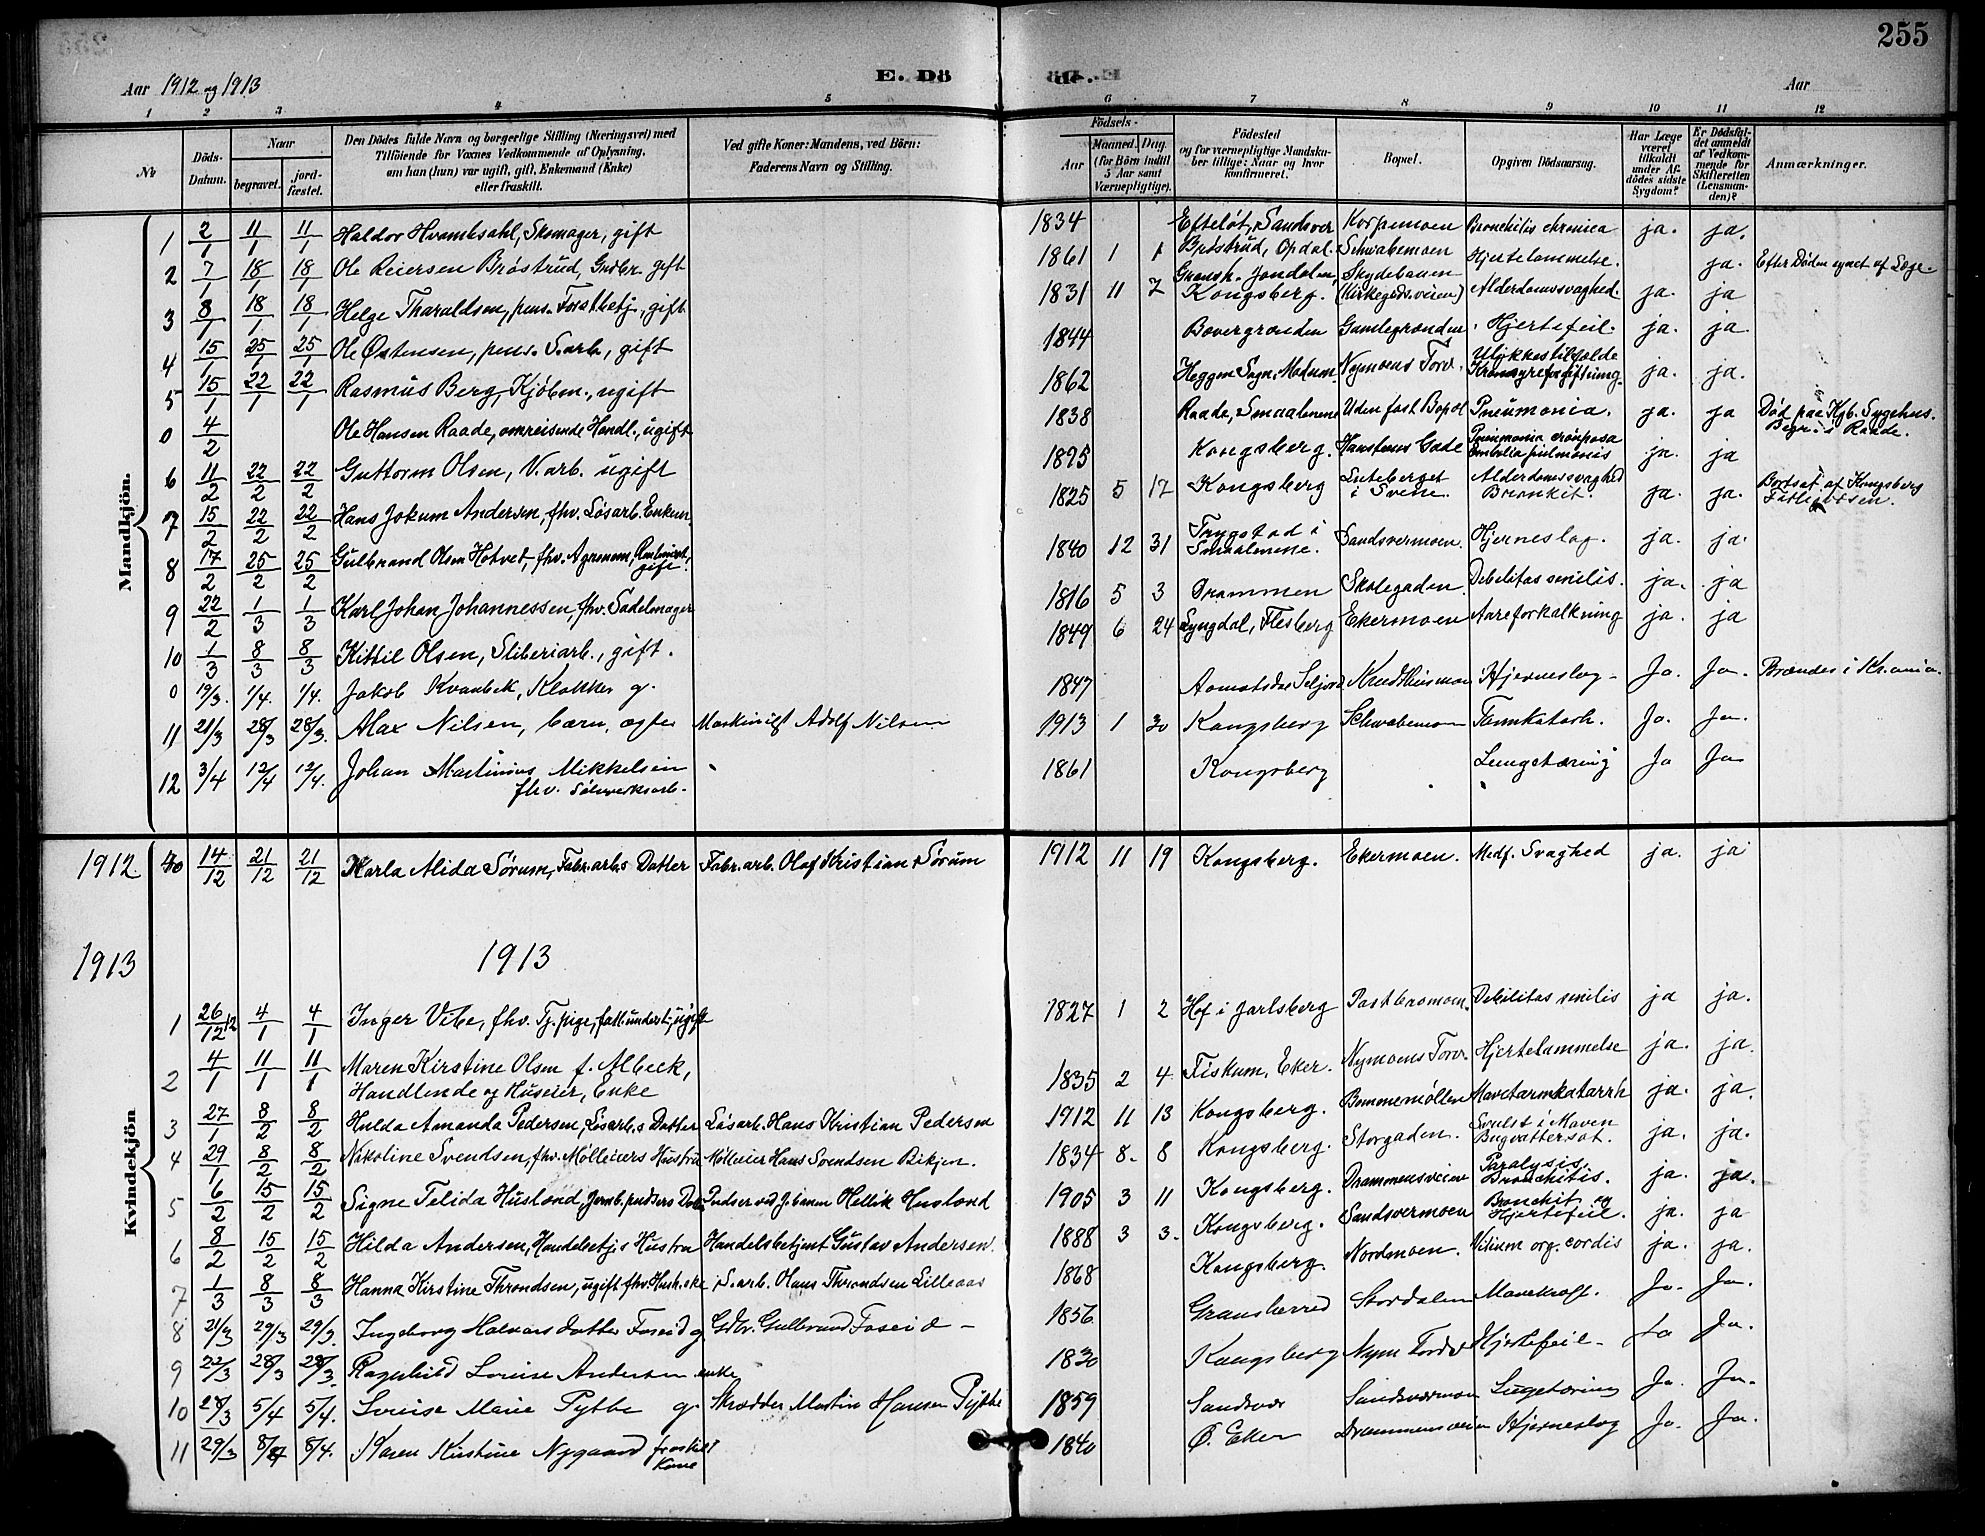 255
Aar 1912 og 1913
E. Dö
de.
Aar
1 2 3 4 5 6 7 8 9 10 11 12
No
Döds-Datum.
Naar
begravet.
jord-fæstet.
Den Dödes fulde Navn og borgerlige Stilling (Næringsvei) med
Tilföiende for Voxnes Vedkommende af Oplysning,
om han (hun) var ugift, gift, Enkemand (Enke)
eller fraskilt.
Ved gifte Koner: Mandens, ved Börn:
Faderens Navn og Stilling.
Födsels-
Aar
Maaned. Dag.
(for Börn indtil
5 Aar samt
Værnepligtige).
Födested
og for værnepligtige Mandskaber tillige: Naar og hvor
konfirmeret.
Bopæl.
Opgiven Dödsaarsag.
Har Læge
været
tilkaldt
under Afdödes sidste
Sygdom?
Er Dödsfaldet anmeldt
af Vedkommende for
Skifteretten
(Lensmanden)?
Anmærkninger.
Mandkjön.
1 2/1 11/1 11/1 Haldor Hvambsahl, Skomager, gift 1834 Efteløt, Sandsver Korpemoen Bronchitis chronica ja. ja.
2 7/1 18/1 18/1 Ole Reiersen Brøstrud, Gaabr. gift 1861 1 1 Brøstrud, Opdal Schwabemoen Hjertelammelse. ja. Efter Døden synet af Læge.
3 8/1 18/1 18/1 Helge Tharaldsen, pens. Forstbetj., gift 1831 11 7 Gransh. Jondalen, Kongsberg. Skydebanen (Kirkegdsveien) Alderdomssvaghed. ja. ja
4 15/1 25/1 25/1 Ole Østensen, pens. S.arb., gift 1844 Bævergrænden Gamlegrænden Hjertefeil. ja. ja
5 15/1 22/1 22/1 Rasmus Berg, Kjøbm., ugift 1862 Heggen Sogn, Modum Nymoens Torv. Ulykkestilfælde ja. ja.
0 4/2 Ole Hansen Raade, omreisende Handl., ugift 1838 Raade, Smaalenene Uden fast Bopæl Pneumonia. ja. ja Død paa Kgb. Sygehus. Begr. i Raade.
6 11/2 22/2 22/2 Guttorm Olsen, V.arb. ugift 1895 Kongsberg. Hansteens Gade Pneumonia crouposa Embolia pulmonis ja. ja
7 15/2 22/2 22/2 Hans Jokum Andersen, fhv. Løsarb. Enkem. 1825 5 17 Kongsberg i Svene. Alderdomssvaghed Bronkit. ja. ja. Bortsat af Kongsberg
8 17/2 25/2 25/2 Gulbrand Olsen Hotvet, fhv. Agronom, gift 1840 12 31 Trygstad i Smaalenene. Sandsvermoen. Hjerneslag. ja. ja.
9 22/2 1/3 1/3 Karl Johan Johannessen, fhv. Sadelmager 1816 5 3 Drammen Skolegaden. Debilitas senilis. ja. ja
10 1/3 8/3 8/3 Kittil Olsen, Sliberiarb., gift. 1849 6 24 Lyngdal, Flesberg Ekermoen Aareforkalkning ja. ja
0 19/3. 1/4. 1/4. Jakob Kvanbek, Klokker g. 1847 Aamotsdal Seljord Hjerneslag Ja. Ja. Brændes i Kr.ania.
11 21/3 28/3 28/3. Max Nilsen, barn, ægte Maskinist Adolf Nilsen 1913 1 30 Kongsberg Schwabemoen Tarmkatarh. Ja. Ja.
12 3/4 12/4 12/4. Johan Martinius Mikkelsen 1861 Kongsberg Lungetæring Ja Ja
fhv. Sølvverksarb.
Kvindekjön
1912. 40 14/12 21/12 21/12 Karla Alida Sørum, Fabr.arb.s Datter Fabr.arb. Olaf Kristian Sørum 1912 11 19 Kongsberg. Ekermoen. Medf. Svaghed ja. ja
1913 1913
1 26/12 12 4/1 4/1 Inger Vibe, fhv. Tj.pige, fatt.underst., ugift 1827 1 2 Hof i Jarlsberg Debilitas senilis ja ja.
2 4/1 11/1 11/1 Maren Kirstine Olsen f. Albeck, 1835 2 4 Fiskum, Eker. Nymoens Torv. Hjertelammelse ja. ja.
Handlende og Huseier, Enke
3 27/1 8/2 8/2 Hulda Amanda Pedersen, Løsarb.s Datter Løsarb. Hans Kristian Pedersen 1912 11 13 Kongsberg. Bommemøllen Mavetarmkatarrh ja. ja.
4 29/1 8/2 8/2 Nikoline Svendsen, fhv. Mølleiers Hustru Mølleier Hans Svendsen Bikjen. 1834 8 8 Kongsberg. Storgaden. Svulst i Maven Bugvattersot. ja. ja.
5 6/2 15/2 15/2 Signe Telida Husland, Jernb.pudsers Dat. Pudser ved J.banen Hellik Husland 1905 3 11 Kongsberg. Drammensveien Paralysis Bronchitis. ja. ja.
6 8/2 15/2 15/2 Hilda Andersen, Handelsbetj.s Hustru Handelsbetjent Gustav Andersen. 1888 3 3. Kongsberg. Sandsvermoen Bronchit og Hjertefeil. ja. ja
7 1/3 8/3 8/3 Hanna Kirstine Throndsen, ugift fhv. S.arb. Hans Throndsen Lilleaas 1868 Kongsberg. Nordmoen. Vitium org. cordis ja. ja.
8 21/3 29/3 29/3. Ingeborg Halvorsdatter Foseid g. Gdbr. Gulbrand Foseid 1856 Gransherred Stordalen Mavekræft. Ja. Ja.
9 22/3 28/3 28/3. Ragnhild Lovise Andersen enke 1830 Kongsberg Nym Torv Hjertefeil Ja Ja.
10 28/3 5/4 5/4. Lovise Marie Pytte g. Skrædder Martin Hansen Pytte 1859 Sandsvær Sandsværmoen Lugetæring Ja. Ja.
11 29/3 8/4 8/4. Karen Kirstine Nygaard fraskilt Kone 1840 Ø. Eker Drammensveien Hjerneslag Ja. Ja.